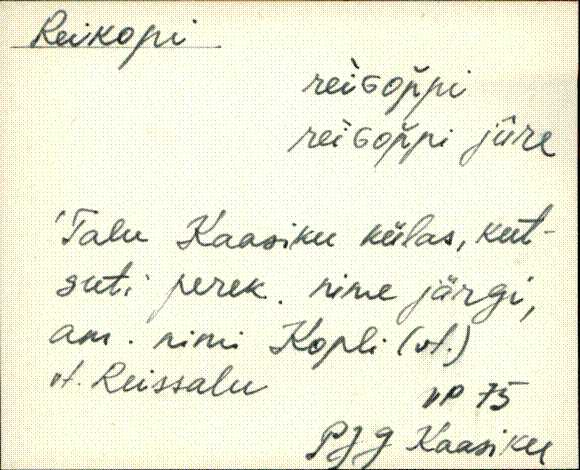 Reikopi
reìGop̆pi
reìGop̆pi jûre
'Talu Kaasiku külas, kut-
suti perek. nime järgi,
am. nimi Kopli (vt.)
vt. Reissalu
VP 75
PJg Kaasiku